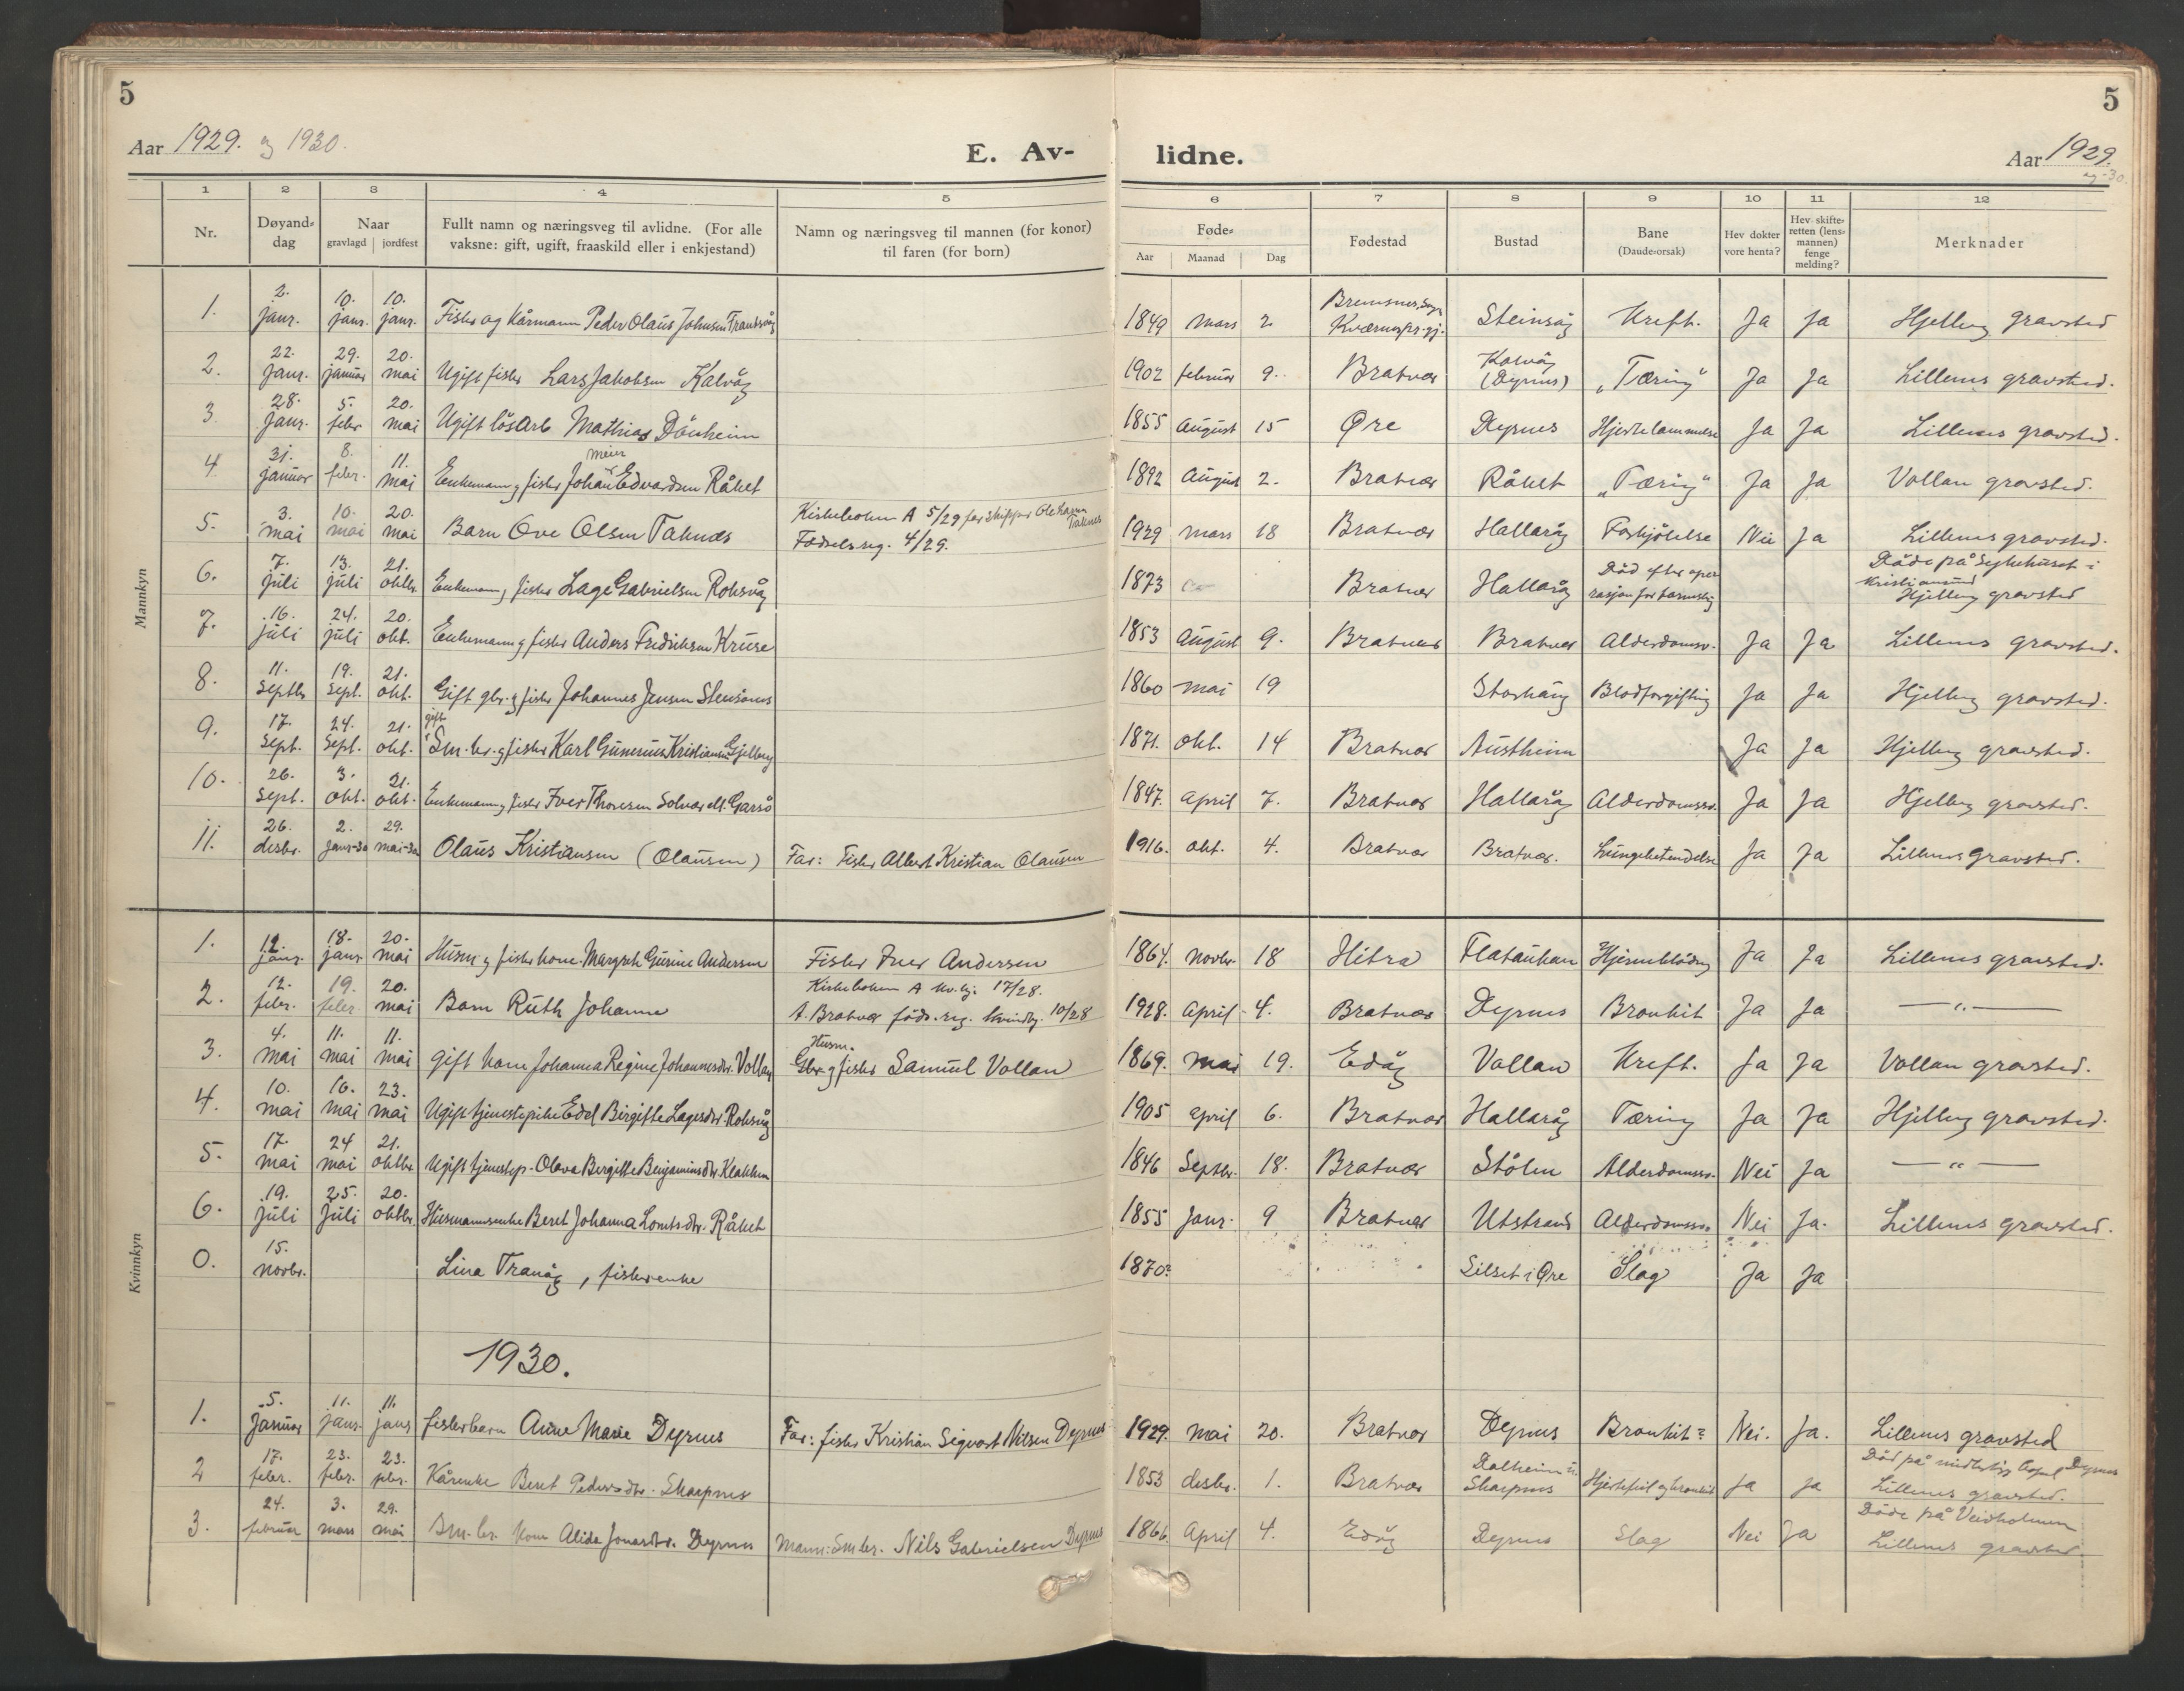 5
5
Aar 1929. og 1930.
E. Av-
lidne.
Aar 1929.
og -30.
1 2 3 4 5 6 7 8 9 10 11 12
Nr.
Døyand-
dag
Naar
gravlagd | jordfest
Fullt namn og næringsveg til avlidne. (For alle
vaksne: gift, ugift, fraaskild eller i enkjestand)
Namn og næringsveg til mannen (for konor)
til faren (for born)
Føde-
Aar Maanad Dag
Fødestad
Bustad
Bane
(Daude-orsak)
Hev dokter
vore henta?
Hev skifte-
retten (lens-
mannen)
fenge
melding?
Merknader
Mannkyn
1. 2. janr. 10. janr. 10. janr. Fisker og kårmann Peder Olaus Johnsen 1849 mars 2. Bremsnes Kvernes pr.gj. Steinsåg Kreft. Ja Ja Hjellvåg gravsted
2. 22. janr. 29. januar 20. mai Ugift fisker Lars Jakobsen Kalvåg 1902 februar 9. Bratvær Kalvåg (Dyrnes) "Tæring" Ja Ja Lillenes gravsted.
3. 28. janr. 5. febr 20. mai Ugift lösarb Mathias Dönheim 1855 August 15 Øre Dyrnes Hjertelammelse Ja Ja Lillenes gravsted.
4 31. januar 8. febr. 11. mai Enkemann og fisker Johan Meier Edvardsen Råket 1892 August 2. Bratvær Råket "Tæring" Ja Ja Vollan gravsted.
5. 3. mai 10. mai 20. mai Barn Ove Olsen Taknes Kirkeboken A 5/29 far skipper Ole Taknes Fødselsreg. 4/29. 1929 mars 18 Bratvær Hallaråg Forkjölelse Nei Ja Lillenes gravsted.
6. 7. juli 13. juli 21. oktbr. Enkemann og fisker Lage Gabrielsen Roksvåg 1873 Bratvær Hallaråg Död efter operasjon for Döde på Sykehuset i Kristiansund Hjellvåg gravsted
7. 16. juli 24. juli 20. okt. Enkemann og fisker Anders Fredriksen Kruse 1853 August 9. Bratvær Bratvær Alderdomssv. Ja Ja Lillenes gravsted.
8. 11. septbr 19. sept. 21. okt. Gift gbr. og fisker Johannes Jensen 1860 mai 19 Blodforgiftning Ja Ja Hjellvåg gravsted.
9. 17. sept. 24. sept. 21. okt. gift Sm.br. og fisker Karl Gunerius Kristiansen Gjelberg 1871. okt. 14 Bratvær Austheim Ja Ja Hjellvåg gravsted.
10. 26. sept. 3. okt. 21. okt. Enkemann og fisker Iver Thoresen Solvær alt. Garsö 1847. april 7. Bratvær Hallaråg Alderdomssv. Ja Ja Hjellvåg gravsted.
11. 26. desbr. 2. janr-30 29. mai-30 Olaus Kristiansen (Olausen) Far: Fisker Albert Kristian Olausen 1916. okt. 4. Bratvær Bratvær. Lungebetendelse Ja Ja Lillenes gravsted.
Kvinnkyn
1. 12. janr. 18. janr 20. mai Husm og fisker kone Margreth Gurine Andersen Fisker Iver Andersen 1864. Novbr. 18 Hitra Flatauken Hjerneblödning Ja Ja Lillenes gravsted.
2. 12. febr. 19. febr. 20. mai Barn Ruth Johanne Kirkeboken A kv.kj. 17/28. A. Bratvær föds.reg. kvindkj. 10/28 1928. April 4. Bratvær Dyrnes Bronkit Ja Ja —"—
3. 4. mai 11. mai 11. mai Gift kone Johanna Regine Johannesdtr. Vollan Husm. Gbr. og fisker Samuel Vollan 1869. mai 19. Edöy Vollan Kreft. Ja Ja Vollan gravsted.
4. 10. mai 16. mai 23. mai Ugift tjenestepike Edel Birgitte Lagesdtr. Roksvåg 1905 april 6. Bratvær Hallaråg Tæring Ja Ja Hjellvåg gravsted.
5. 17. mai 24 mai 21. oktbr Ugift tjenestep. Olava Bergitte Benjaminsdtr. Klakken 1846 Septbr. 18. Bratvær Stölen Alderdomssv. Nei Ja —"—
6. 19. juli 25. juli 20. oktbr. Husmannsenke Beret Johanna Lorntsdtr. Råket 1855 Janr. 9 Bratvær Utstrand Alderdomssv. Nei Ja. Lillenes gravsted.
0. 15. novbr. Lina Tranåg, fiskerenke 1870? Silset i Øre Slag Ja Ja
1930.
1. 5. Januar 11. janr. 11. janr fiskerbarn Anne Marie Dyrnes Far: fisker Kristian Sigvart Nilsen Dyrnes 1929. mai 20. Bratvær Dyrnes Bronkit? Nei. Ja. Lillenes gravsted
2 17. febr. 23. febr. 23. febr. Kårenke Beret Pedersdtr. Skarpnes 1853 desbr. 1. Bratvær Dalheim u. Skarpnes Hjertefeil og bronkit Ja Ja Död på Dyrnes Lillenes gravsted.
3. 24. februar 3. mars 29. mai Sm.br. kone Alida Jonasdtr. Dyrnes Mann: Sm br. Nils Gabrielsen Dyrnes 1866. April 4. Edöy Dyrnes Slag Nei Ja Döde på Veidholmen Lillenes gravsted.